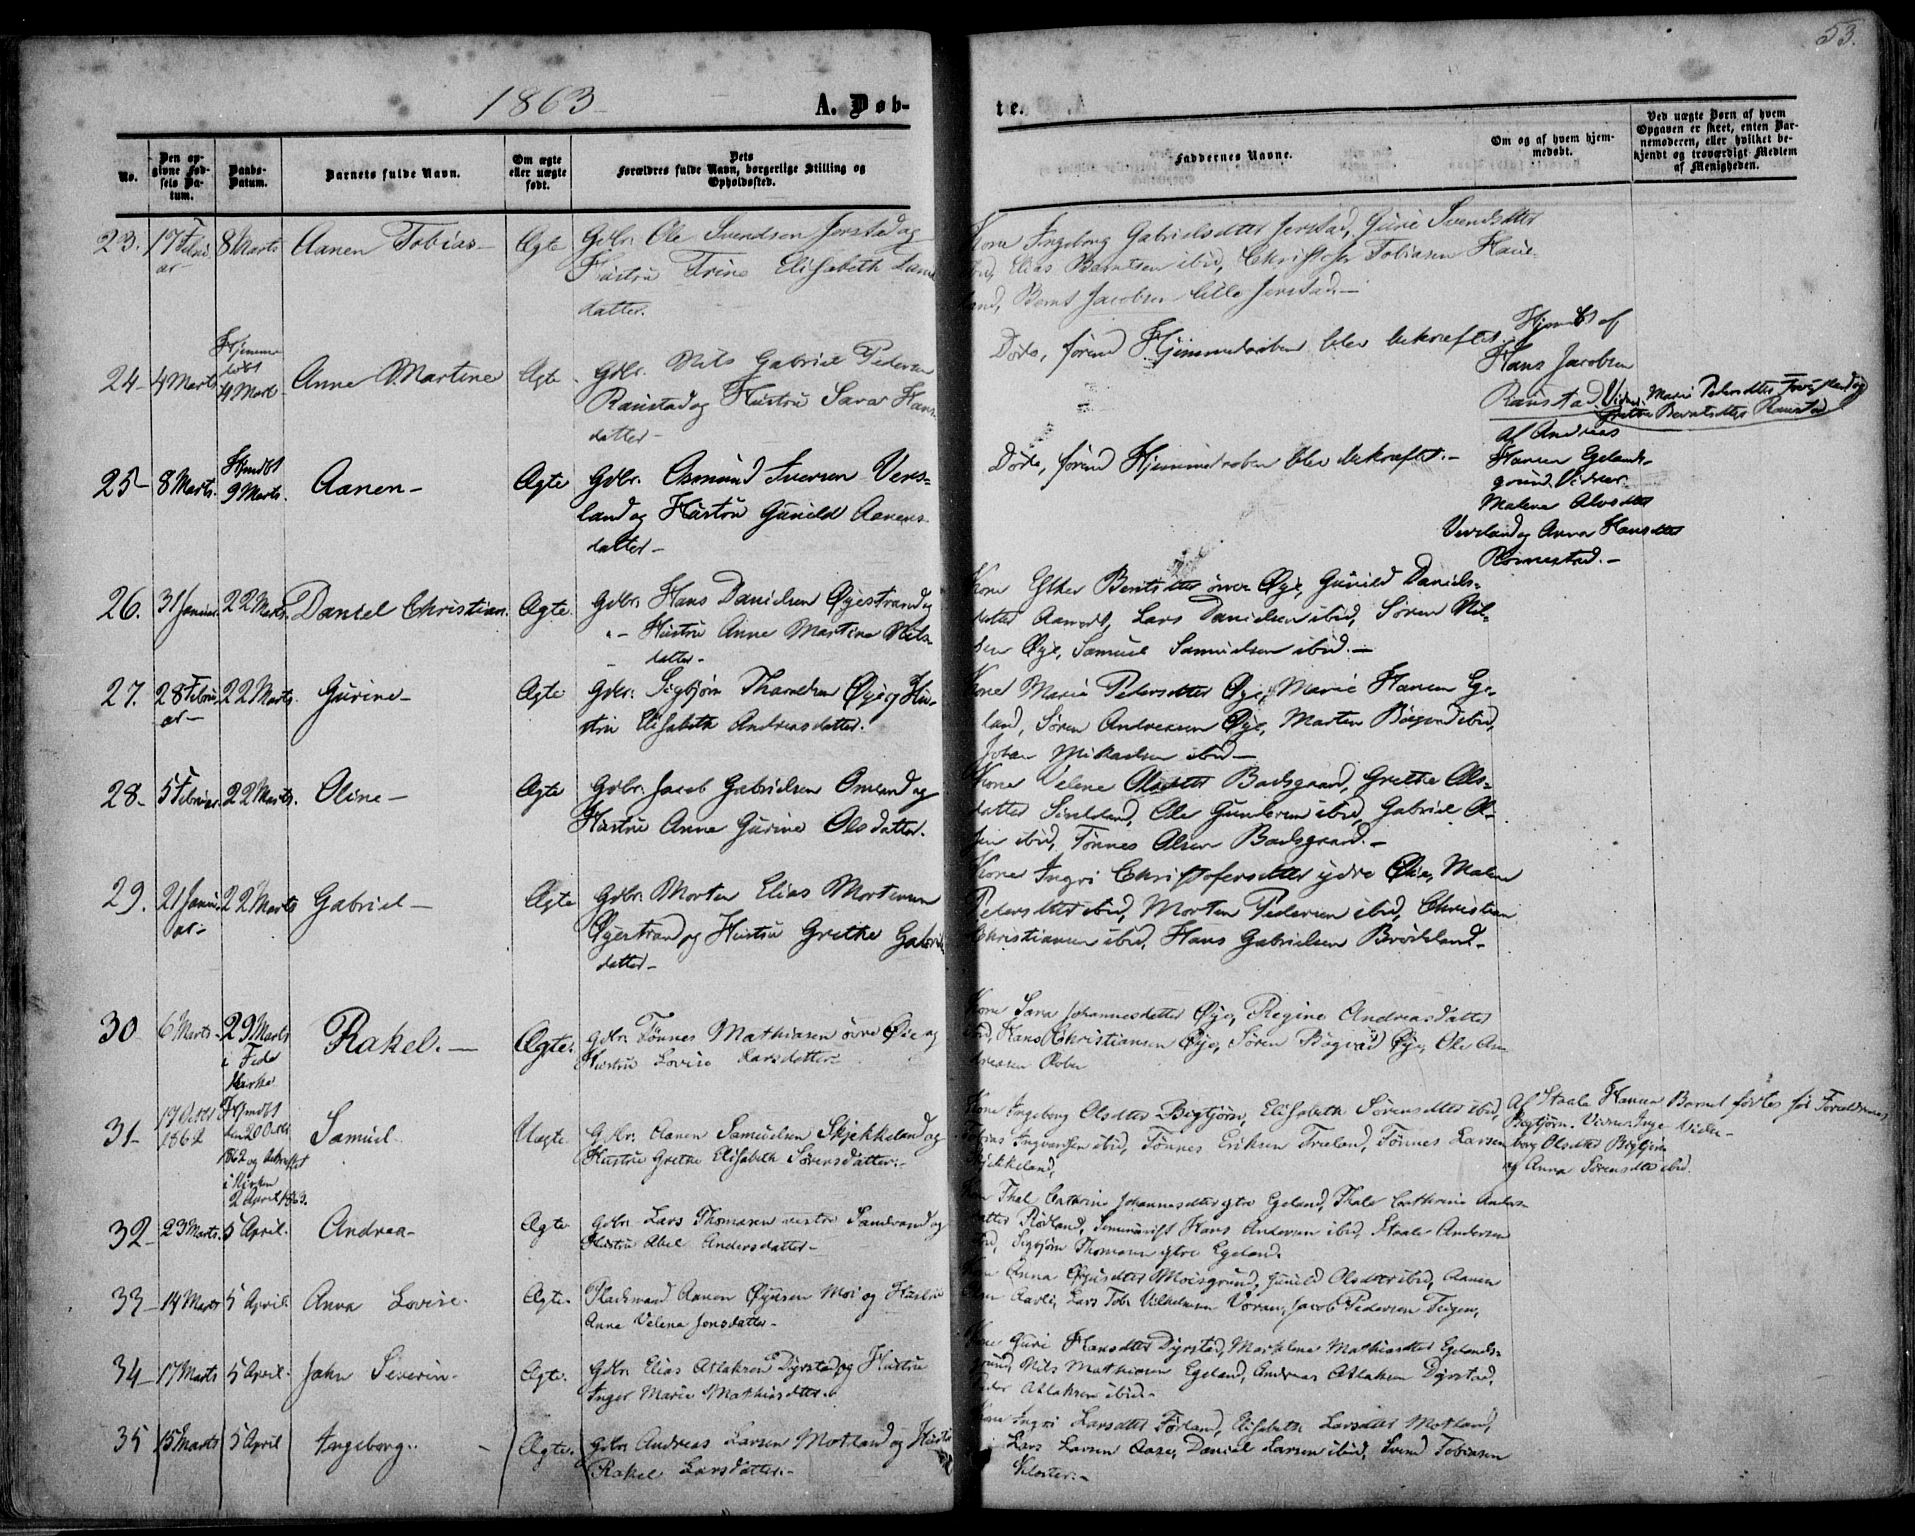 53.
1863
A. Døb-
te.
No.
Den opgivne Fødsels Datum.
Daabs-Datum.
Barnets fulde Navn.
Om ægte eller uægte født.
Dets Forældres fulde Navn, borgerlige Stilling og Opholdssted.
Faddernes Navne.
Om og af hvem hjemmedøbt.
Ved uægte Børn af hvem Opgaven er skeet, enten Barnemoderen, eller hvilket bekjendt og troværdigt Medlem af Menigheden.
23. 17 Febru 8 Marts Aanen Tobias- Ægte Gdbr. Ole Svendsen Jerstad og
ar Hustru Trine Elisabeth
datter.
Kone Ingeborg Gabrielsdtter Jerstad, Guri Svendsdtter
ibid, Elias Berntsen ibid, Christoffer Tobiasen Haue-
land, Bernt Jacobsen lille Jerstad.-
Hjemme
døbt
24- 4 Marts 4 Marts Anne Martine Ægte Gdbr. Nils Gabriel Pedersen
Raustad og Hustru Sara Hans
datter-
Døde, førend Hjemmedaaben blev bekræftet. Hjemdbt af
Hans Jacobsen
Raustad. Vidner. Marie Pedersdtter
Grethe Berntsdtter Raustad
Hjmdbt
25- 8 Marts. 9 Marts. Aanen- Ægte Gdbr. Osmund Iversen Vers-
land og Hustru Gunild Aanens-
datter-
Døde, førend Hjemmedaaben blev bekræftet.- Af Andreas
Hansen Egelands-
grund. Vidner
Malene Alvsdtter
Versland og Anna Hansdtter
Romestad.-
26. 31 Januar 22 Marts. Daniel Christian. Ægte. Gdbr. Hans Danielsen Øyestrand og
Hustru Anne Martine Nils-
datter-
Kone Esther Berntsdtter øvre Øye, Gunild Daniels-
datter Aamodt, Lars Danielsen ibid, Søren Nil-
sen Øye, Samuel Samuelsen ibid.-
27. 28 Febru 22 Marts. Gurine- Ægte Gdbr. Sigbjørn Øye og Hu-
ar- stru Elisabeth Andreasdatter.
Kone Marie Pedersdtter Øye, Marie Hansen Ege-
land, Søren Andreasen Øye, Morten Bøgvad ibid,
Johan Mikaelsen ibid-
28- 5 Februar 22 Marts. Oline- Ægte Gdbr. Jacob Gabrielsen Omland og
Hustru Anne Gurine Olsdatter.
Kone Velene Olsdtter Badsgaard, Grethe Ols-
datter Ole Gundersen ibid, Gabriel Ol-
sen ibid, Tønnes Olsen Badsgaard.-
29. 21 Janu 22 Marts Gabriel- Ægte Gdbr. Morten Elias Mortensen
ar- Øyestrand og Hustru Grethe Gabriels
datter-
Kone Ingri Christofersdtter ydre Øie, Malene
Pedersdtter ibid, Morten Pedersen ibid, Christian
Christiansen ibid, Hans Gabrielsen Brødsland-
30 6 Marts- 29 Marts Rakel.- Ægte. Gdbr. Tønnes Mathiasen øvre Øie og
i Feda Hustru Lovise Larsdatter-
Kirke
Kone Sara Johannesdatter Øye, Regine Andreasdatter
ibid, Hans Christiansen Øye, Søren Bøgvad Øye, Ole An-
dreasen
31- 17 Octbr 1862 Hjmdbt den 20 Octb 1862 og bekræftet i Kirken 2 April 1863. Samuel Uægte Gdbr. Aanen Samuelsen Skjekkeland og
Hustru Grethe Elisabeth Sørensdatter.-
Kone Ingeborg Olsdtter Bigtjørn, Elisabeth Sørensdtter ibid,
Tobias Ingvartsen ibid, Tønnes Eriksen Træland, Tønnes Larsen
Skjekkeland,
Af Staale Hansen Barnet fødtes før Forældrenes
Bigtjørn. Vidner Inge- Vielse-
borg Olsdtter Bigtjørn
og Anna Sørensdtter ibid.
32- 23 Marts. 5 April. Andrea- Ægte Gdbr. Lars Thomasen vestre Sandvand og
Hustru Abel Andersdatter-
Kone Thal Cathrine Johannesdtter ytre Egeland, Thale Cathrine Anders-
datter Rødland, Seminarist Hans Andersen ibid, Staale Andersen
ibid, Sigbjørn Thomasen ytre Egeland.
33- 14 Marts 5 April. Anna Lovise. Ægte. Pladsmand Aanen Øyusen Moi og Hustru
Anne Velena Jonsdatter-
Kone Anna Øyusdtter Moisgrund, Gunild Olsdtter ibid, Aanen
Olsen Aarli, Lars Tob. Vilhelmsen Voran, Jacob Pedersen Tiegen,
34- 17 Marts 5 April- John Severin- Ægte. Gdbr. Elias Atlaksen Dyrstad og Hustru
Inger Marie Mathiasdtter.
Kone Guri Hansdtter Dyrstad, Marthene Mathiasdtter Egelands-
grund, Nils Mathiasen Egeland, Andreas Atlaksen Dyrstad,
Peder Atlaksen ibid.-
35 15 Marts 5 April Ingeborg. Ægte. Gdbr. Andreas Larsen Motland og Hustru
Rakel Larsdatter.-
Kone Ingri Larsdtter Førland, Elisabeth Larsdtter Motland,
Lars Larsen Aase, Daniel Larsen ibid, Svend Tobiasen
Kloster.-